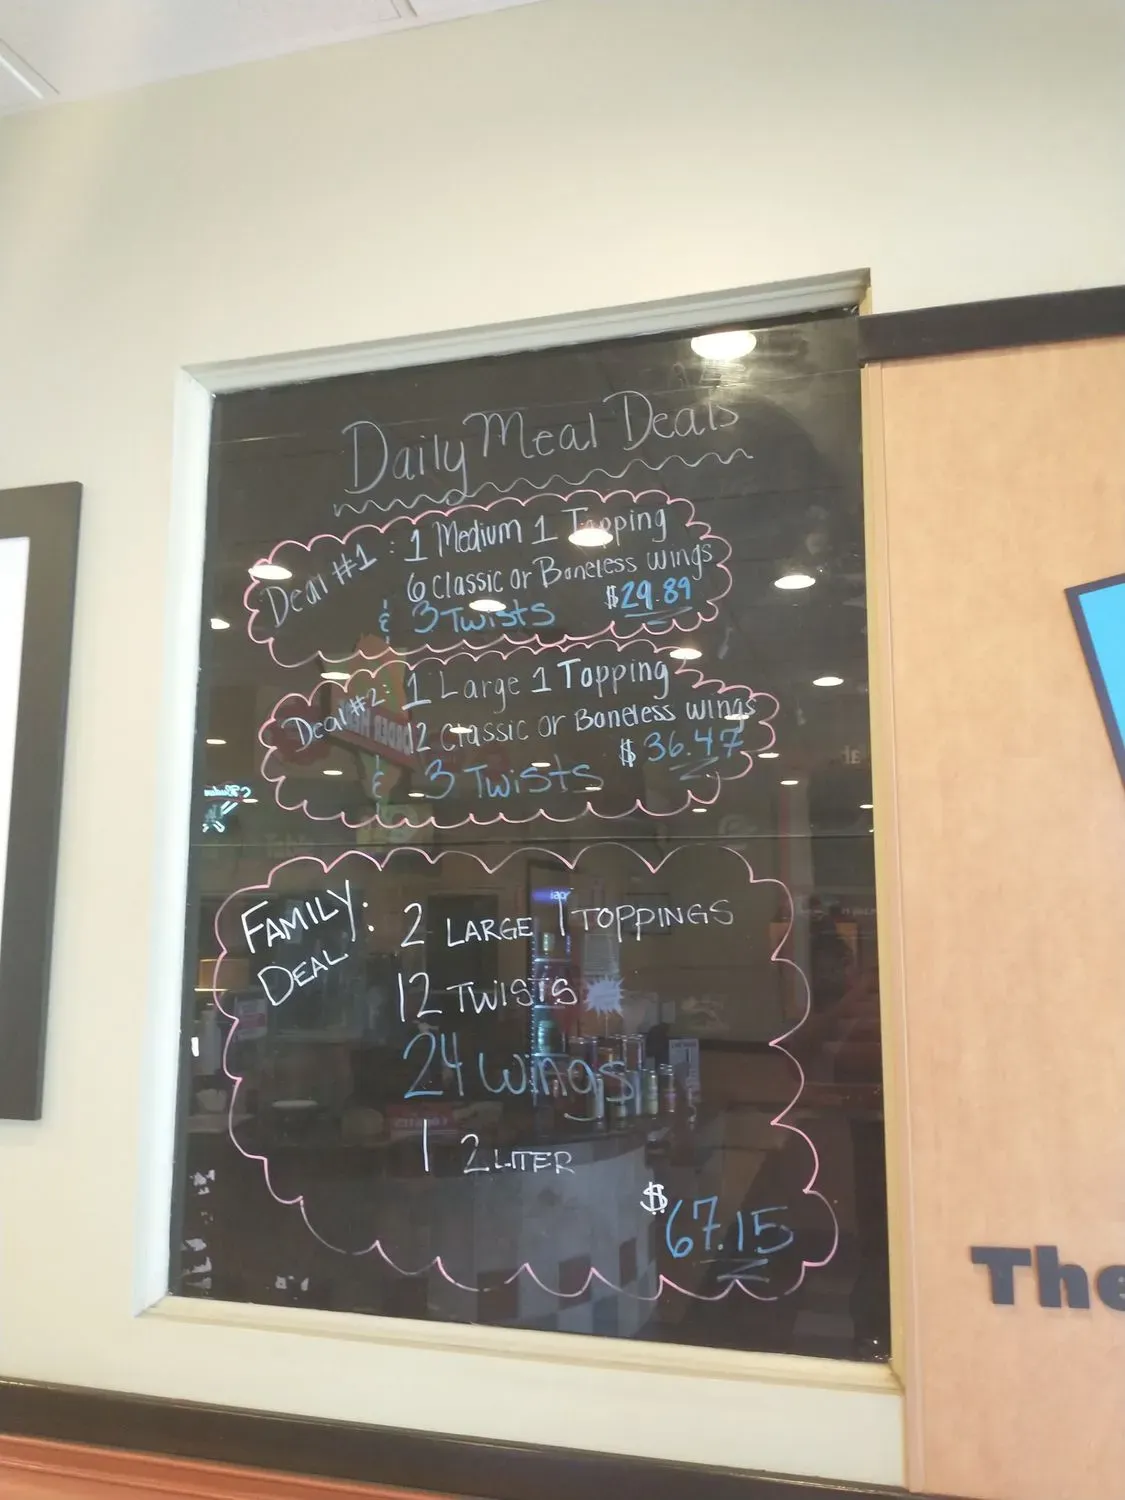 Daily Meal Deals
Deal #1 : 1 Medium 1 Topping
6 Classic or Boneless wings
& 3 Twists $29.89
Deal #2 : 1 Large 1 Topping
12 Classic or Boneless wings
$36.47
& 3 Twists
FAMILY DEAL : 2 LARGE 1 TOPPINGS
12 TWISTS
24 wings
1 2 LITER
$67.15
The